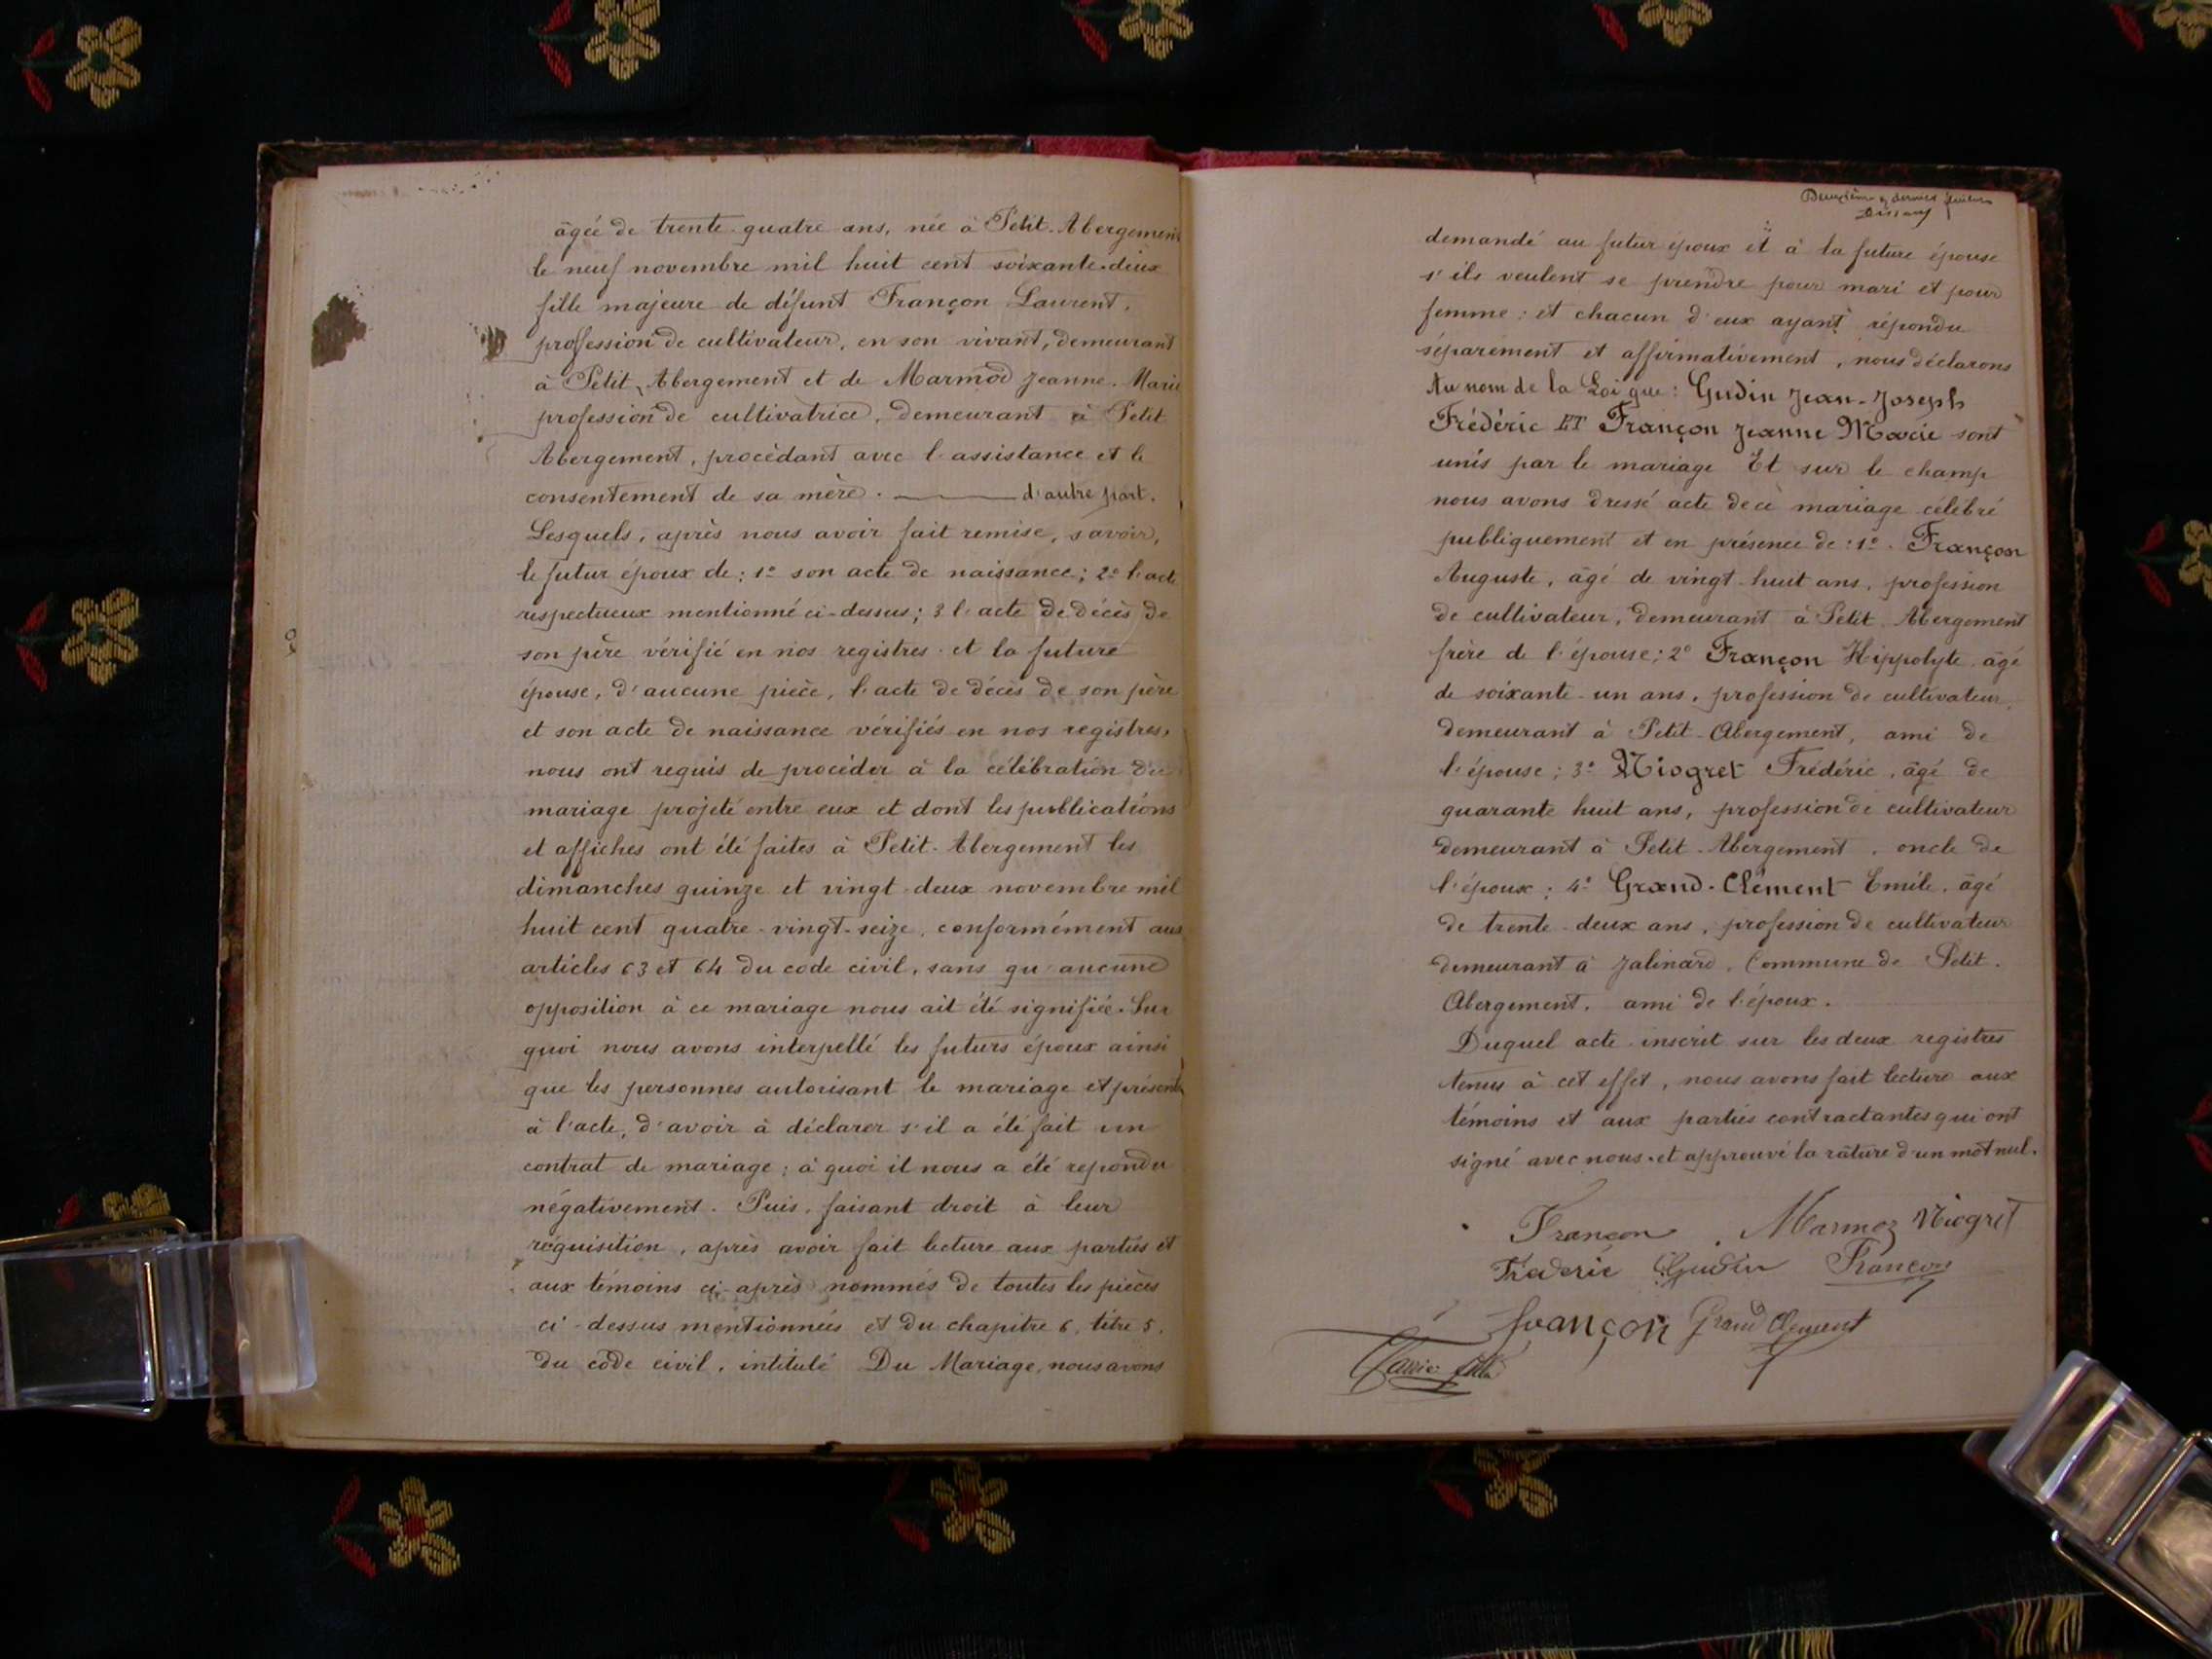 âgée de trente-quatre ans, née à Petit-Abergement
le neuf novembre mil huit cent soixante-deux
fille majeure de défunt Françon Laurent,
profession de cultivateur, en son vivant, demeurant
à Petit-Abergement et de Marmod Jeanne-Marie
profession de cultivatrice, demeurant à Petit
Abergement, procédant avec l'assistance et le
consentement de sa mère. ——— d'autre part.
Lesquels, après nous avoir fait remise, savoir,
le futur époux de: 1º son acte de naissance; 2º l'acte
respectueux mentionné ci-dessus; 3 l'acte de décès de
son père vérifié en nos registres et la future
épouse, d'aucune pièce, l'acte de décès de son père
et son acte de naissance vérifiés en nos registres,
nous ont requis de procéder à la célébration du
mariage projeté entre eux et dont les publications
et affiches ont été faites à Petit-Abergement les
dimanches quinze et vingt-deux novembre mil
huit cent quatre-vingt-seize, conformément aux
articles 63 et 64 du code civil, sans qu'aucune
opposition à ce mariage nous ait été signifiée. Sur
quoi nous avons interpellé les futurs époux ainsi
que les personnes autorisant le mariage et présentes
à l'acte, d'avoir à déclarer s'il a été fait un
contrat de mariage; à quoi il nous a été repondu
négativement. Puis, faisant droit à leur
réquisition, après avoir fait lecture aux parties et
aux témoins ci-après nommés de toutes les pièces
ci-dessus mentionnées et du chapitre 6, titre 5,
du code civil, intitulé Du Mariage, nous avons
Deuxième & dernier feuillet
demandé au futur époux et à la future épouse
s'ils veulent se prendre pour mari et pour
femme: et chacun d'eux ayant répondu
séparement et affirmativement, nous déclarons
Au nom de la Loi que: Gudin Jean-Joseph
Frédéric ET Françon Jeanne Marie sont
unis par le mariage Et sur le champ
nous avons dressé acte de ce mariage célébré
publiquement et en présence de: 1º. Françon
Auguste, âgé de vingt-huit ans, profession
de cultivateur, demeurant à Petit-Abergement
frère de l'épouse; 2º Françon Hippolyte, âgé
de soixante-un ans, profession de cultivateur,
demeurant à Petit-Abergement, ami de
l'épouse; 3º Niogret Frédéric, âgé de
quarante huit ans, profession de cultivateur
demeurant à Petit-Abergement, oncle de
l'époux; 4º Grand-Clément Emile, âgé
de trente-deux ans, profession de cultivateur
demeurant à Jalinard, Commune de Petit-
Abergement, ami de l'époux.
Duquel acte inscrit sur les deux registres
tenus à cet effet, nous avons fait lecture aux
témoins et aux parties contractantes qui ont
signé avec nous. et approuvé la râture d'un mot nul.
Françon Marmoz Niogret
Fréderic Gudin Françon
françon Grand Clement